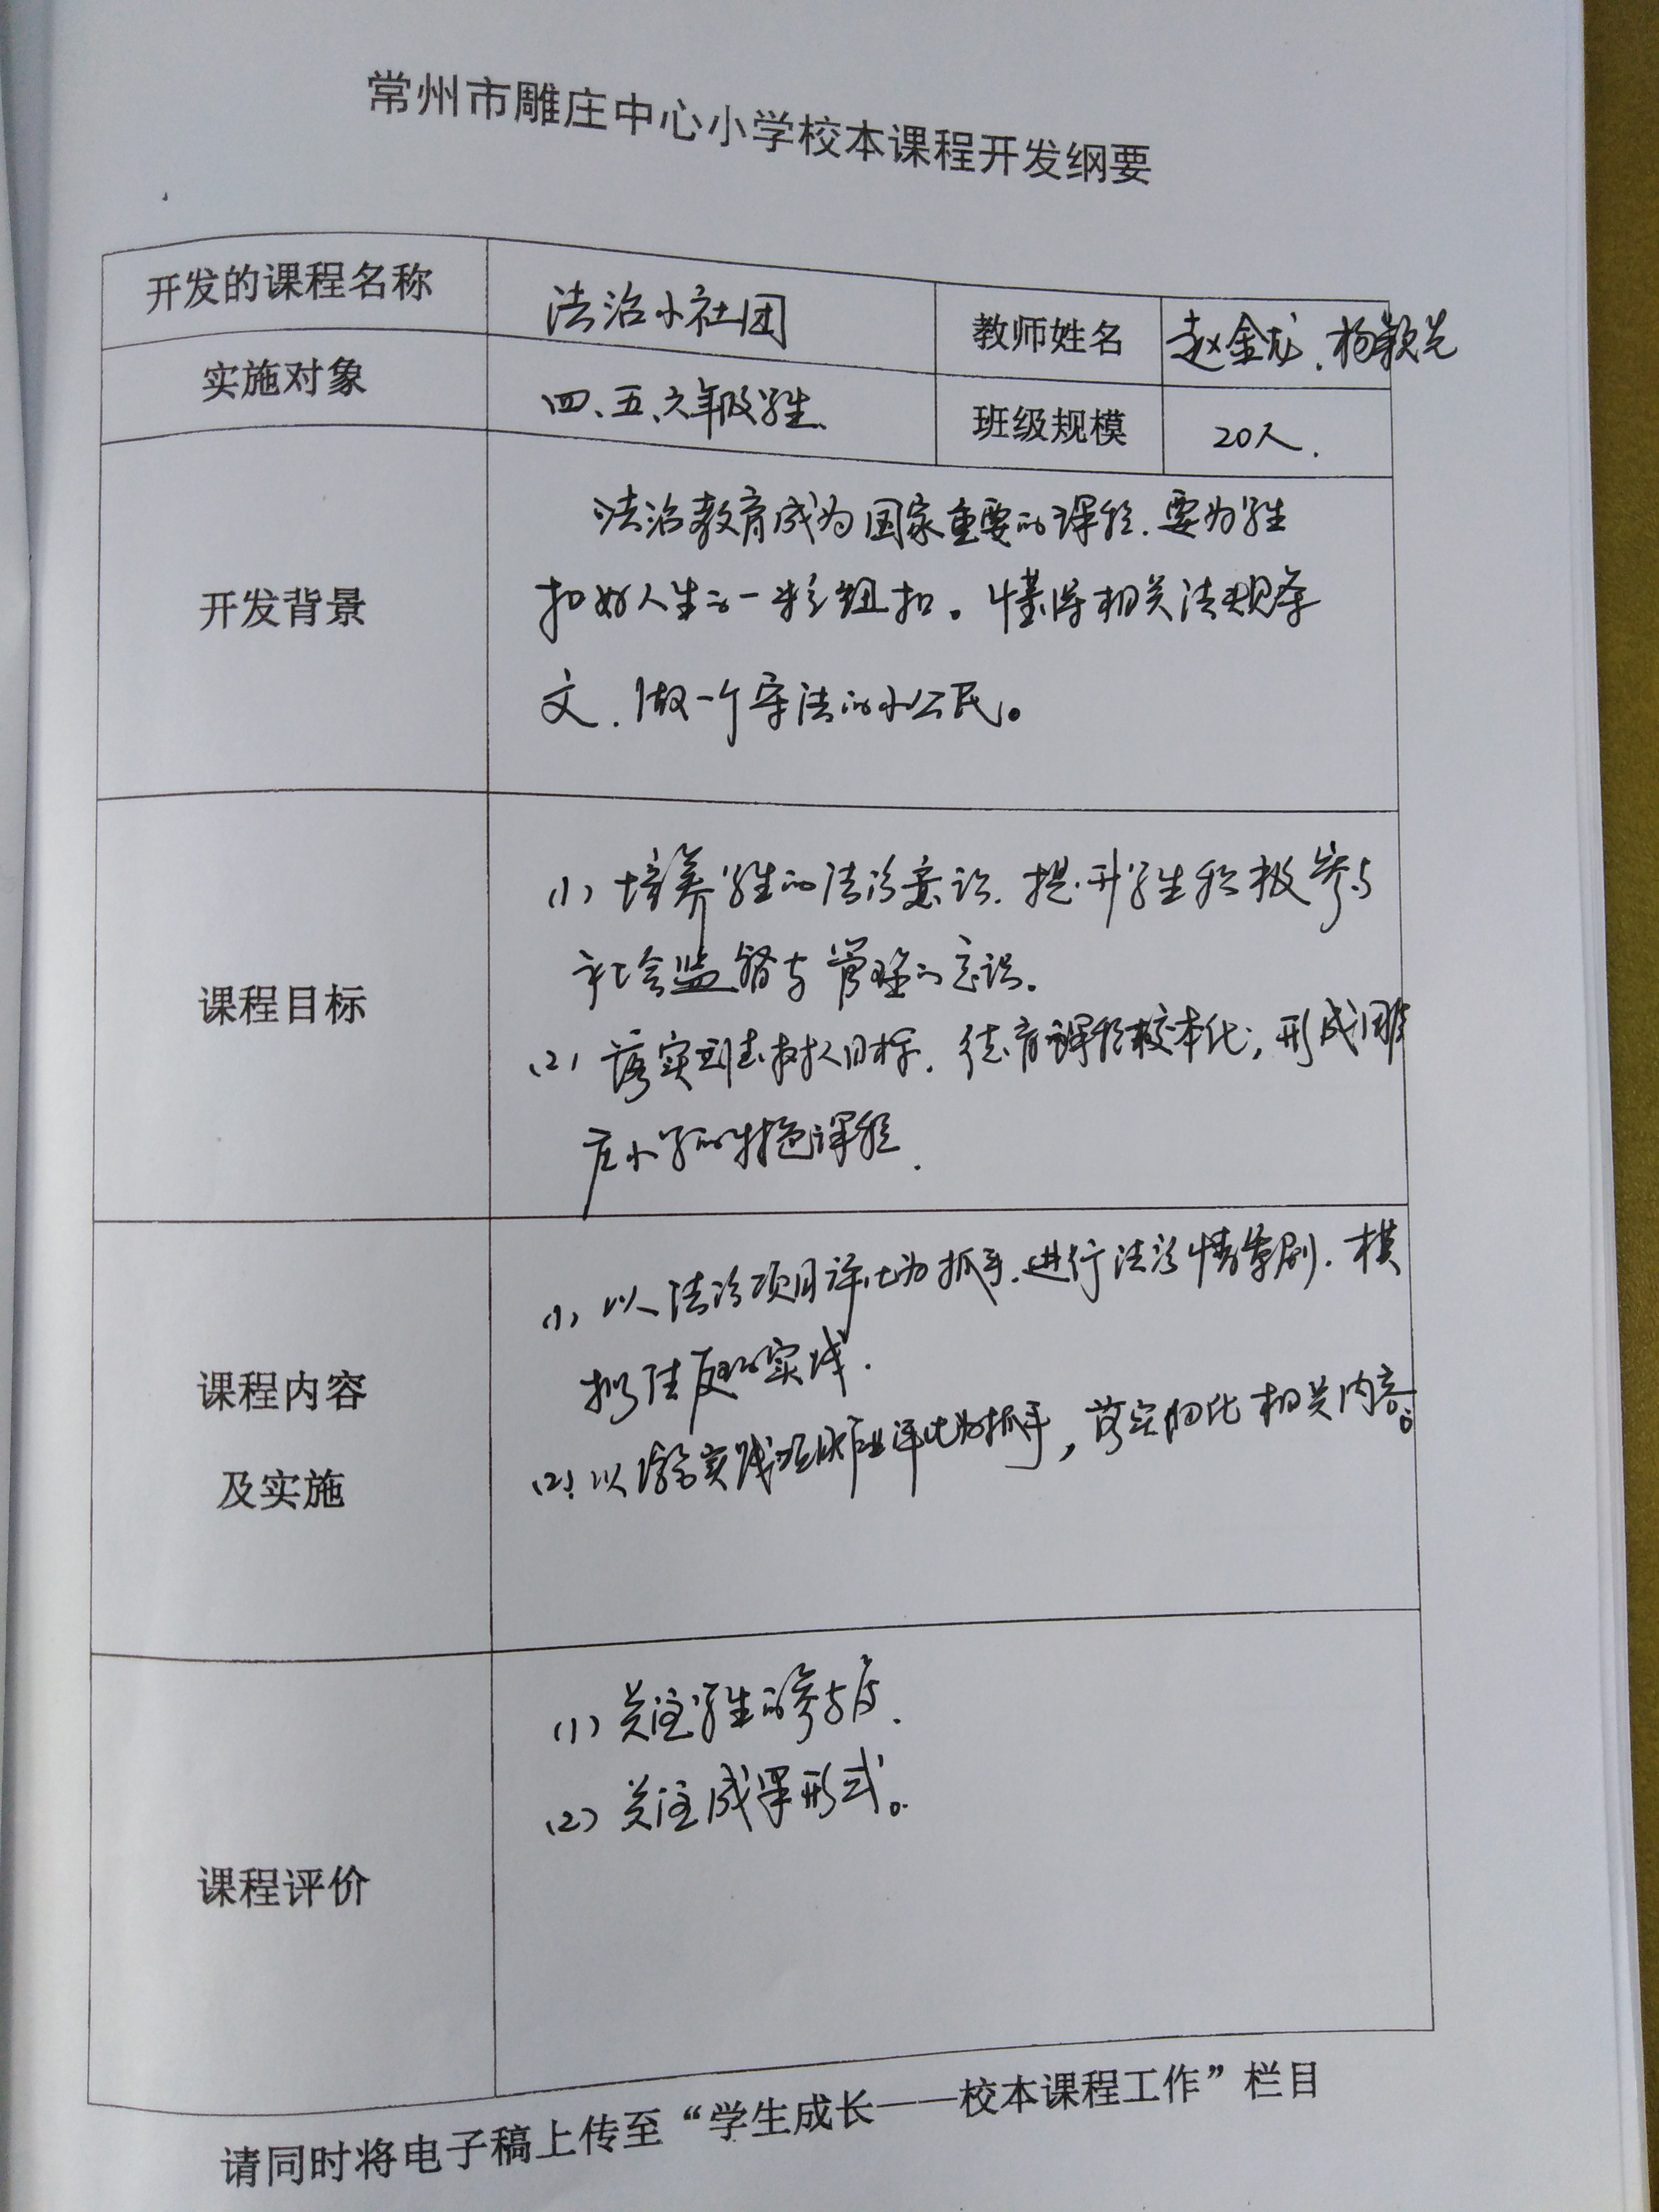 常州市雕庄中心小学校本课程开发纲要
开发的课程名称 法治小社团 教师姓名 赵金龙、杨颖芝
实施对象 四、五、六年级学生. 班级规模 20人.
开发背景
法治教育成为国家重要的课程.要为学生
扣好人生的一粒纽扣。懂得相关法规条
文.做一个守法的小公民。
课程目标
(1) 培养学生的法治意识.提升学生积极参与
社会监督与管理的意识.
(2) 落实立德树人目标.德育课程校本化;形成雕
庄小学的特色课程.
课程内容
及实施
(1) 以法治项目评比为抓手.进行法治情景剧.模
拟法庭的实践.
(2) 以 实践 评比为抓手,落实 相关内容。
课程评价
(1) 关注学生的参与度.
(2) 关注成果形式。
请同时将电子稿上传至“学生成长——校本课程工作”栏目